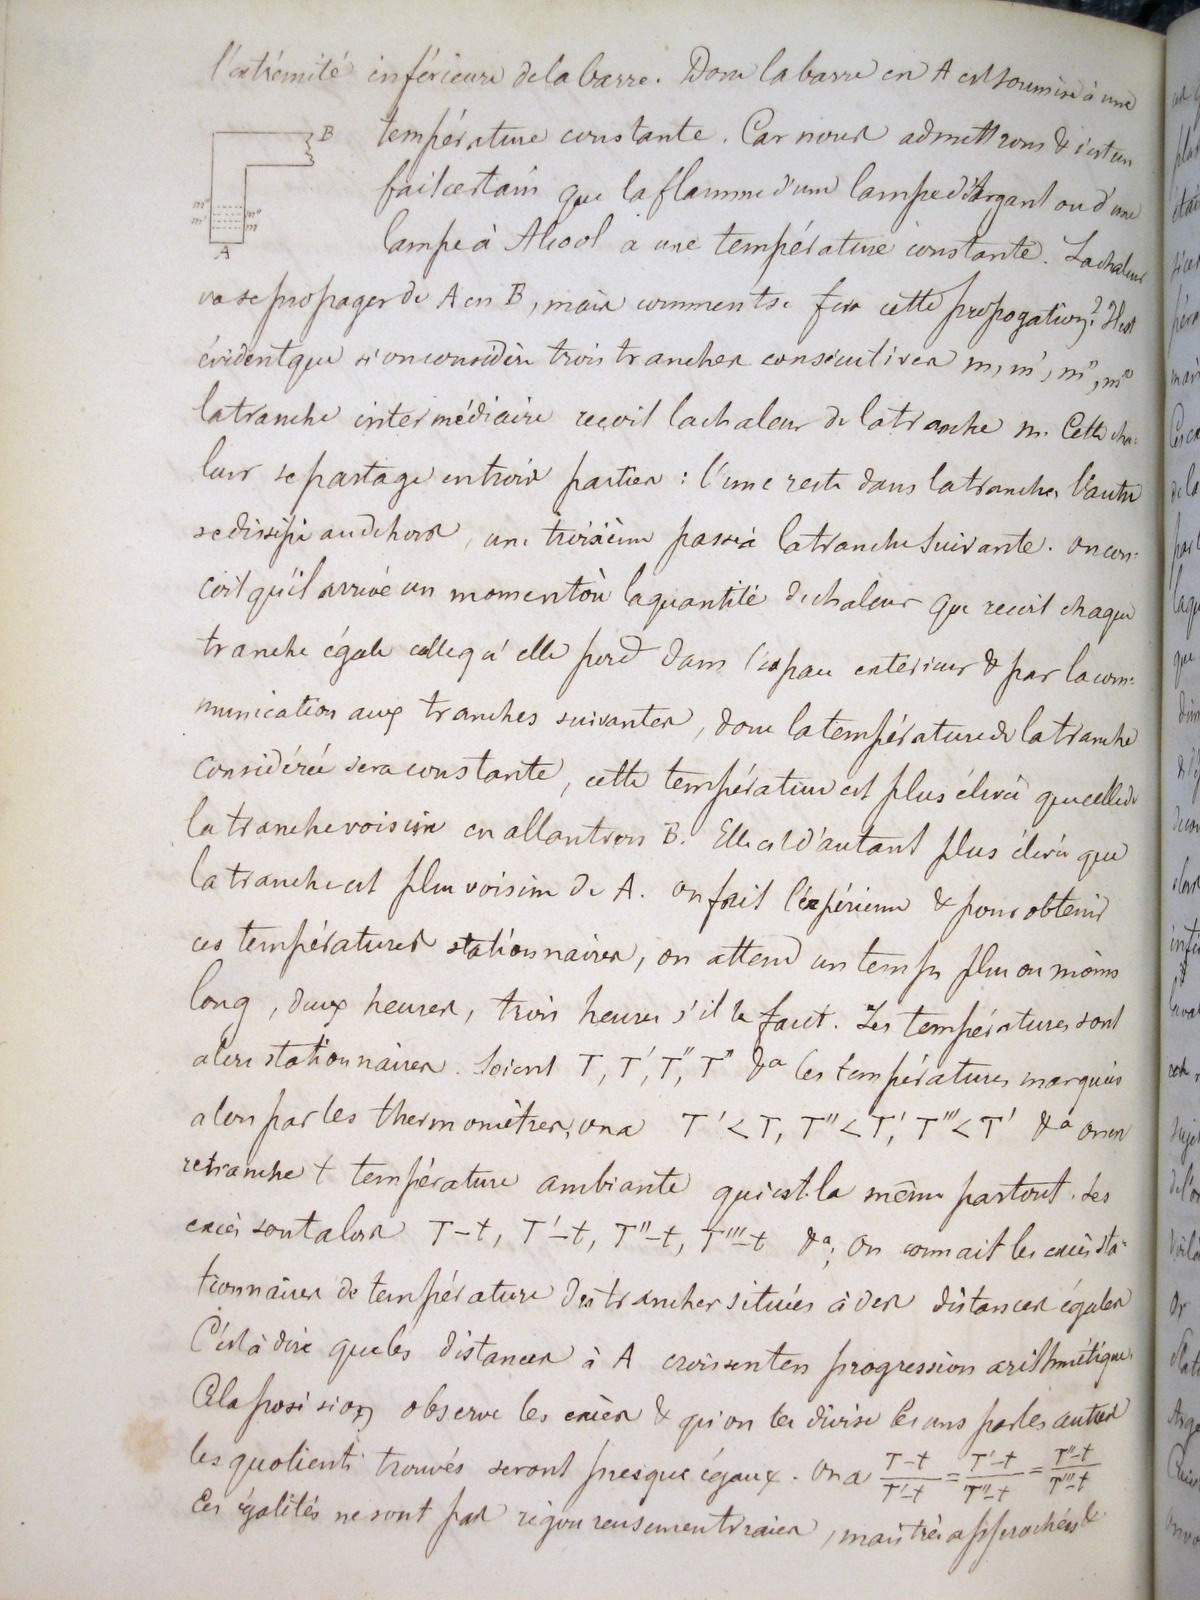 l'extrémité inférieure de la barre. Donc la barre en A est soumise à une
température constante. Car nous admettrons & c'est un
fait certain que la flamme d'une lampe d'Argant ou d'une
lampe à Alcool a une température constante. La chaleur
va se propager de A en B, mais comment se fera cette propogation? Il est
évident que si on considère trois tranches consécutives m, m', m'', m'''
la tranche intermédiaire reçoit la chaleur de la tranche m. Cette cha-
leur se partage en trois parties : l'une reste dans la tranche, l'autre
se dissipe au dehors, une troisième passe à la tranche suivante. on con-
çoit qu'il arrive un moment où la quantité de chaleur que reçoit chaque
tranche égale celle qu'elle perd dans l'espace extérieur & par la com-
munication aux tranches suivantes, donc la température de la tranche
considérée sera constante, cette température est plus élevée que celle de
la tranche voisine en allant vers B. Elle est d'autant plus élevée que
la tranche est plus voisine de A. on fait l'expérience & pour obtenir
ces températures stationnaires, on attend un temps plus ou moins
long, deux heures, trois heures s'il le faut. Les températures sont
alors stationnaires. Soient T, T', T'', T''' &a les températures marquées
alors par les thermomètres, on a T' < T, T'' < T', T''' < T' &a on en
retranche t température ambiante qui est la même partout. Les
excès sont alors T-t, T'-t, T''-t, T'''-t &a; on connait les excès sta-
tionnaires de température des tranches situées à des distances égales
C'est à dire que les distances à A croissent en progression arithmétique.
Cela posé si on observe les excès & qu'on les divise les uns par les autres
les quotients trouvés seront presque égaux. on a T-t/T'-t = T'-t/T''-t = T''-t/T'''-t
Ces égalités ne sont pas rigoureusement vraies, mais très approchées &
B
m''
m'
m''
m
A